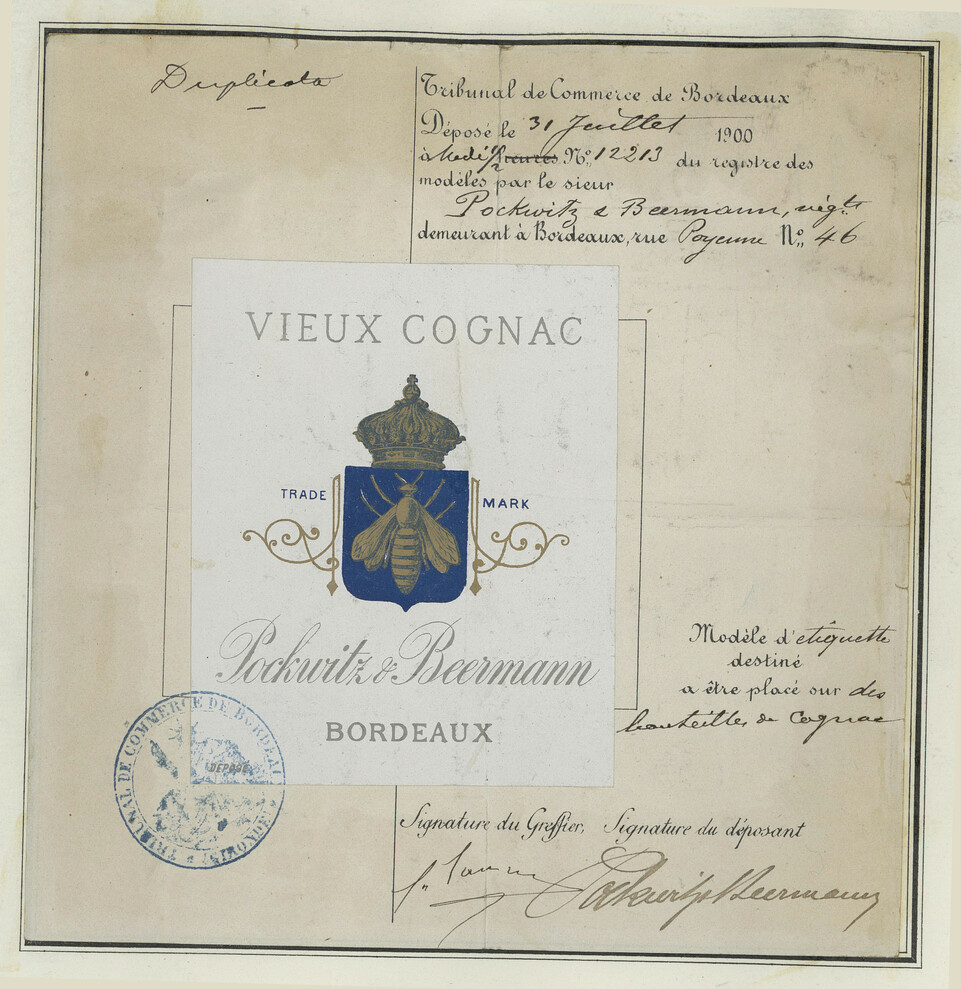 Duplicata
Tribunal de Commerce de Bordeaux
Déposé le 31 Juillet 1900
à Midi 1/2 heures No. 12213 du registre des
modèles par le sieur
Pockwitz & Beermann, négts
demeurant à Bordeaux, rue Poyenne No. 46
VIEUX COGNAC
TRADE MARK
Pockwitz & Beermann
BORDEAUX
Modèle d'etiquette
destiné
a être placé sur des
bouteilles de Cognac
TRIBUNAL DE COMMERCE DE BORDEAUX
DÉPOSÉ
Signature du Greffier, Signature du déposant
Pockwitz & Beermann